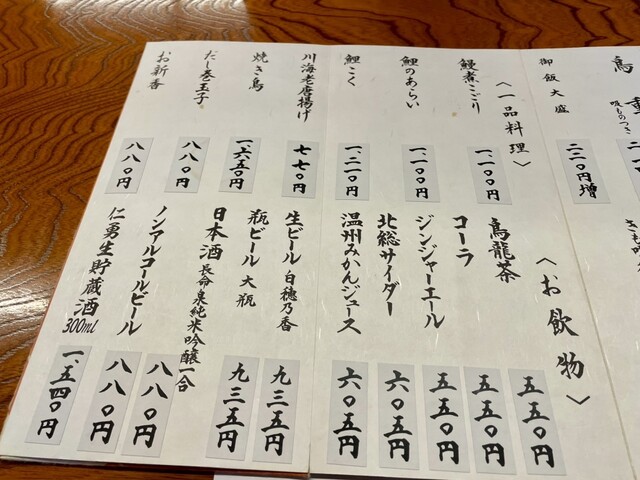 鳥重
吸ものつき
御飯大盛 二二〇円増
〈一品料理〉
鰻煮こごり 一、一〇〇円
鯉のあらい 一、一〇〇円
鯉こく 一、二一〇円
川海老唐揚げ 七七〇円
焼き鳥 一、六五〇円
だし巻玉子 八八〇円
お新香 八八〇円
〈お飲物〉
烏龍茶 五五〇円
コーラ 五五〇円
ジンジャーエール 五五〇円
北総サイダー 六〇五円
温州みかんジュース 六〇五円
生ビール 白穂乃香 九三五円
瓶ビール 大瓶 九三五円
日本酒 長命泉純米吟醸一合 八八〇円
ノンアルコールビール 八八〇円
仁勇生貯蔵酒300ml 一、五四〇円